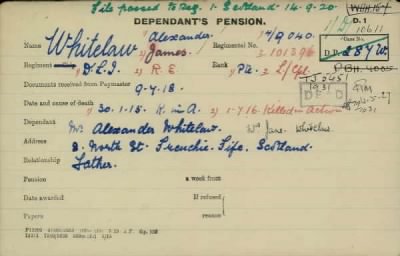 File passed to Reg. 1. Scotland 14.9.20.
DEPENDANT'S PENSION.
D. 1
10611
Case No.
Name Whitelaw Alexander Regimental No. 19040.
James. 101396
Regiment 1) D.L.I. 2) R.E. Rank Pte. L/Cpl.
Documents received from Paymaster
9-7-18.
Date and cause of death
30.1.15. K. in A. 2) 1-7-16 Killed in Action
Dependant Mr Alexander Whitelaw. Jane Whitelaw
Address 2. North St. Freuchie. Fife. Scotland.
Relationship Father.
Pension a week from
Date awarded If refused
Papers reason